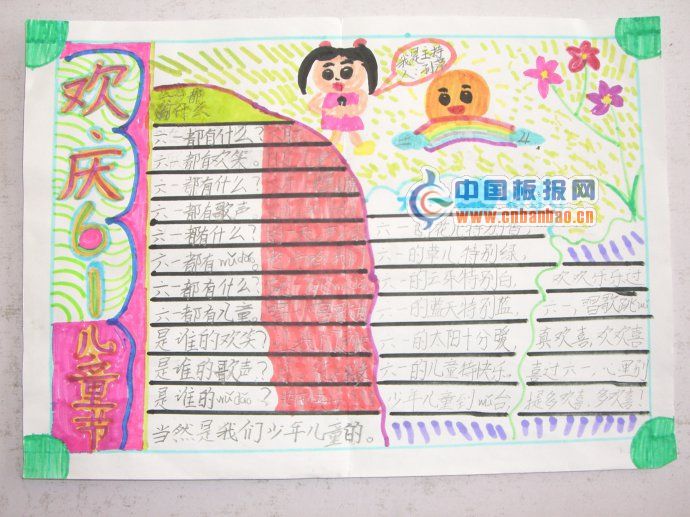 欢庆61
儿童节
我是主持
人:
六一都有什么?
六一都有欢笑。
六一都有什么?
六一都有歌声
六一都有什么?
六一都有wǔdǎo。
六一都有什么?
六一都有儿童。
是谁的欢笑?
是谁的歌声?
是谁的wǔdǎo?
当然是我们少年儿童的。
中国板报网
www.cnbanbao.cn
六一的花儿特别香,
六一的草儿特别绿,
六一的云朵特别白,
六一的蓝天特别蓝,
六一的太阳十分爱,
六一的儿童特快乐。
少年儿童到wǔ台,
欢欢乐乐过
六一,唱歌跳wǔ
真欢喜,欢欢喜
喜过六一,心里别
提多欢喜多欢喜!